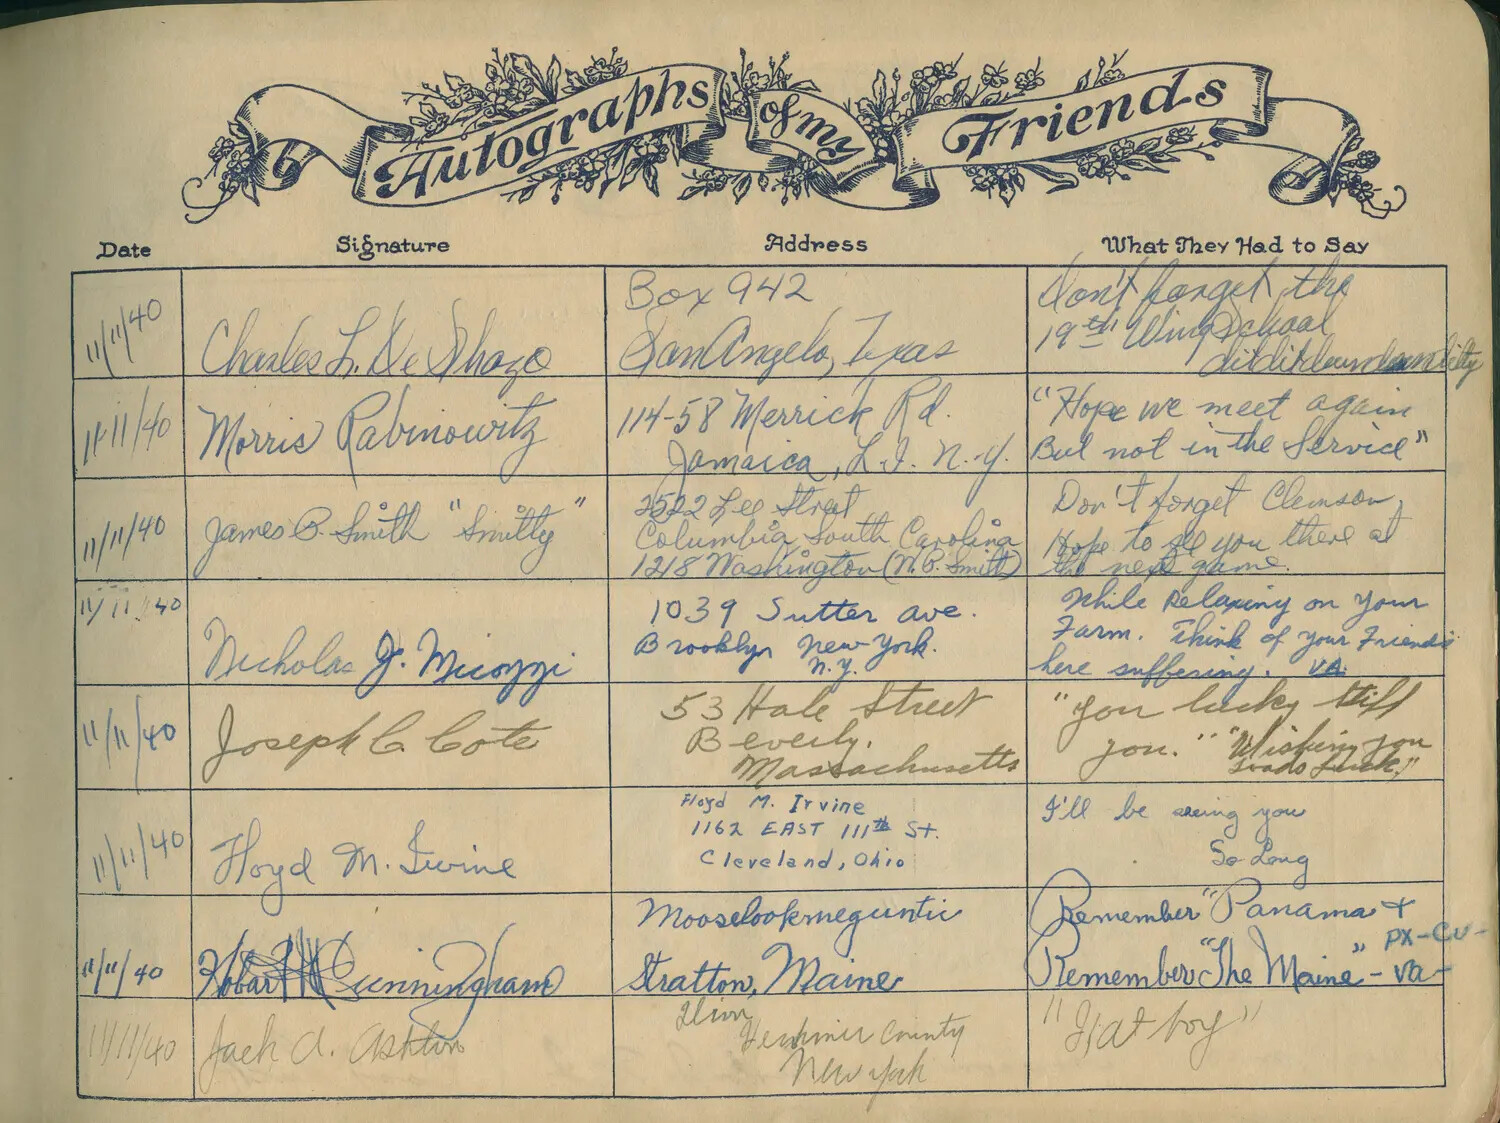 Autographs of my Friends
Date Signature Address What They Had to Say
11/11/40
Charles L. De Shazo
Box 942
San Angelo, Texas
Don't forget the
19th Wing School
11-11/40
Morris Rabinowitz
114-58 Merrick Rd.
Jamaica, L.I. N.Y.
"Hope we meet again
But not in the Service"
11/11/40
James B. Smith "Smitty"
2522 Lee Street
Columbia, South Carolina
1218 Washington (W.B. Smith)
Don't forget Clemson,
Hope to see you there at
the next game.
11/11/40
Nicholas J. Micozzi
1039 Sutter ave.
Brooklyn New York.
N.Y.
While Relaxing on your
Farm. Think of your Friends
here suffering. VA
11/11/40
Joseph C. Cote
53 Hale Street
Beverly,
Massachusetts
"you lucky stiff
you." "Wishing you
Luck."
11/11/40
Floyd M. Irvine
Floyd M. Irvine
1162 EAST 111th St.
Cleveland, Ohio
I'll be seeing you
So Long
11/11/40
Hobart Cunningham
Mooselookmeguntic
Stratton, Maine
Remember "Panama" +
PX-CU-
Remember "The Maine" - VA-
11/11/40
Jack A. Ashton
Ilion
Herkimer County
New York
"Hat boy"